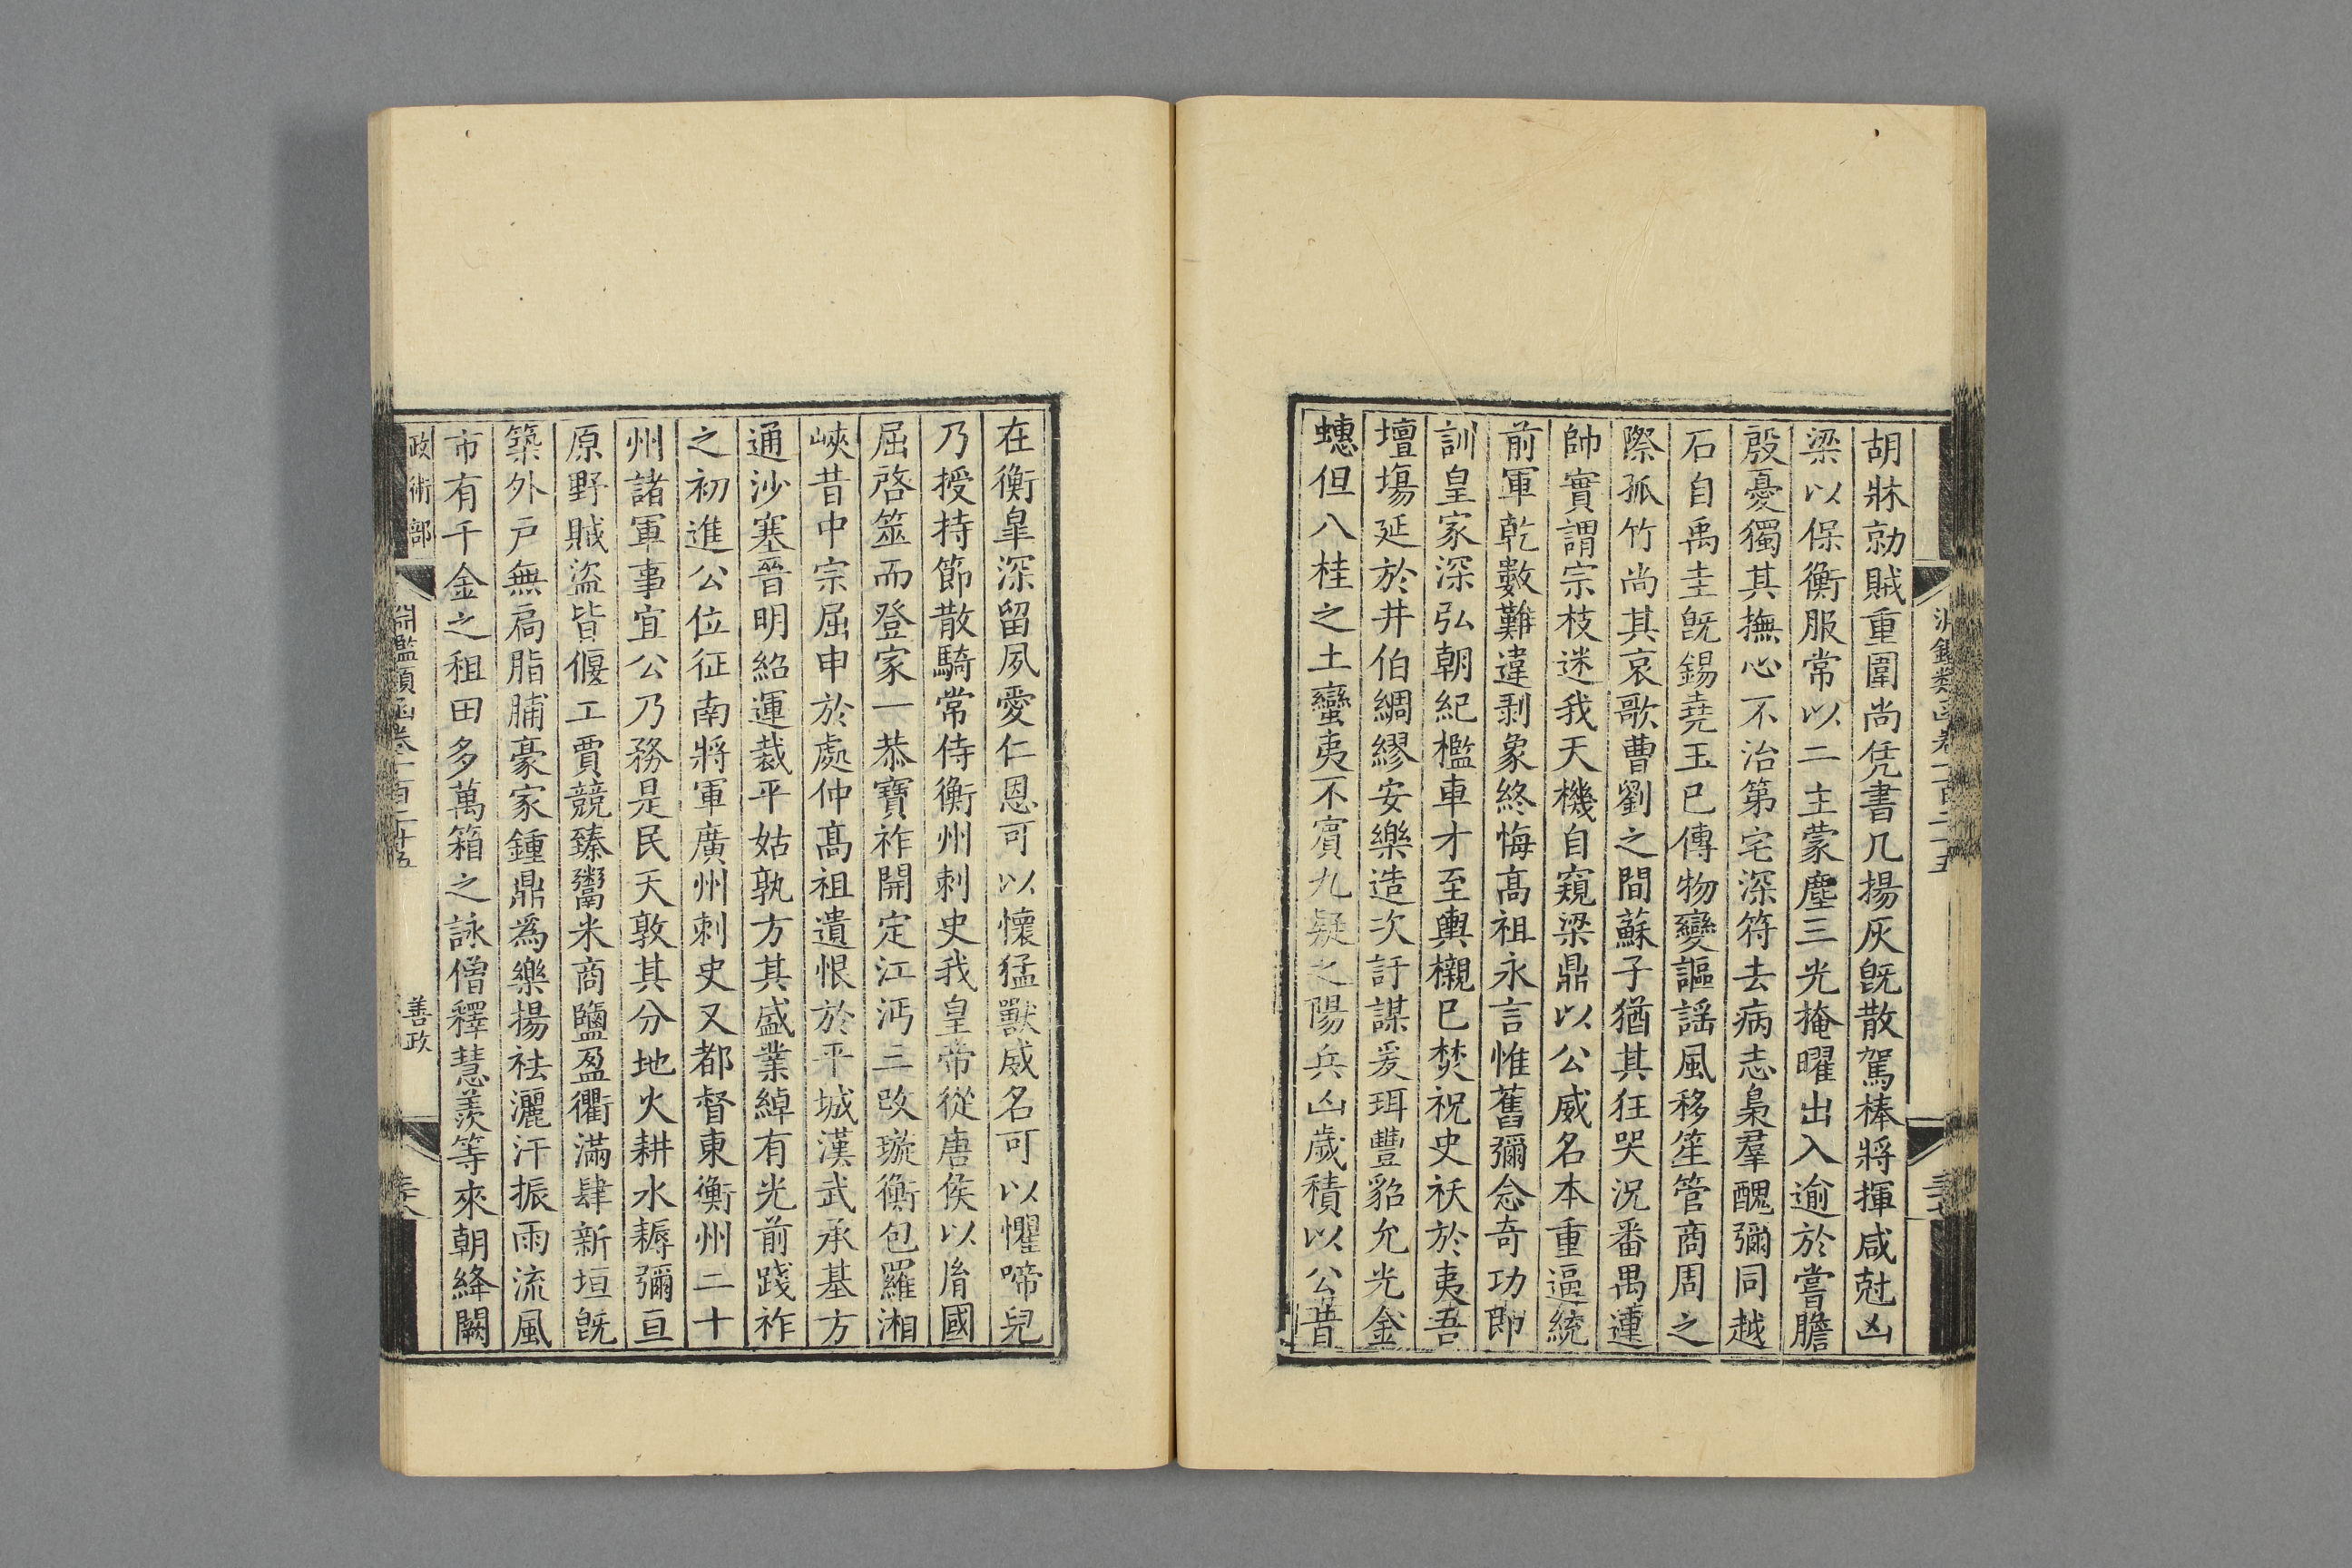 胡牀勍賊重圍尚凭書几揚灰旣散駕棒將揮咸尅凶
梁以保衡服常以二主蒙塵三光掩曜出入逾於嘗膽
殷憂獨其撫心不治第宅深符去病志梟羣醜彌同越
石自禹圭旣錫堯玉已傳物變謳謡風移笙管商周之
際孤竹尚其哀歌曹劉之間蘇子猶其狂哭況番禺連
帥實謂宗枝迷我天機自窺梁鼎以公威名本重逼統
前軍乾數難違剥象終悔髙祖永言惟舊彌念奇功即
訓皇家深弘朝紀檻車才至輿櫬已焚祝史祅於夷吾
壇塲延於井伯綢繆安樂造次訏謀爰珥豐貂允光金
蟪但八桂之土蠻夷不賔九疑之陽兵凶歲積以公昔
在衡臯深留夙愛仁恩可以懷猛獸威名可以懼啼兒
乃授持節散騎常侍衡州刺史我皇帝從唐侯以胤國
屈啓筮而登家一恭寶祚開定江沔三改璇衡包羅湘
峽昔中宗屈申於處仲髙祖遺恨於平城漢武承基方
通沙塞晉明紹運裁平姑孰方其盛業綽有光前踐祚
之初進公位征南將軍廣州刺史又都督東衡州二十
州諸軍事宜公乃務是民天敦其分地火耕水耨彌亘
原野賊盜皆偃工賈競臻鬻米商鹽盈衢滿肆新垣旣
築外戸無扃脂脯豪家鍾鼎爲樂揚袪灑汗振雨流風
市有千金之租田多萬箱之詠僧釋慧羨等來朝絳闕
政術部 淵鑑類函卷一百二十五 善政